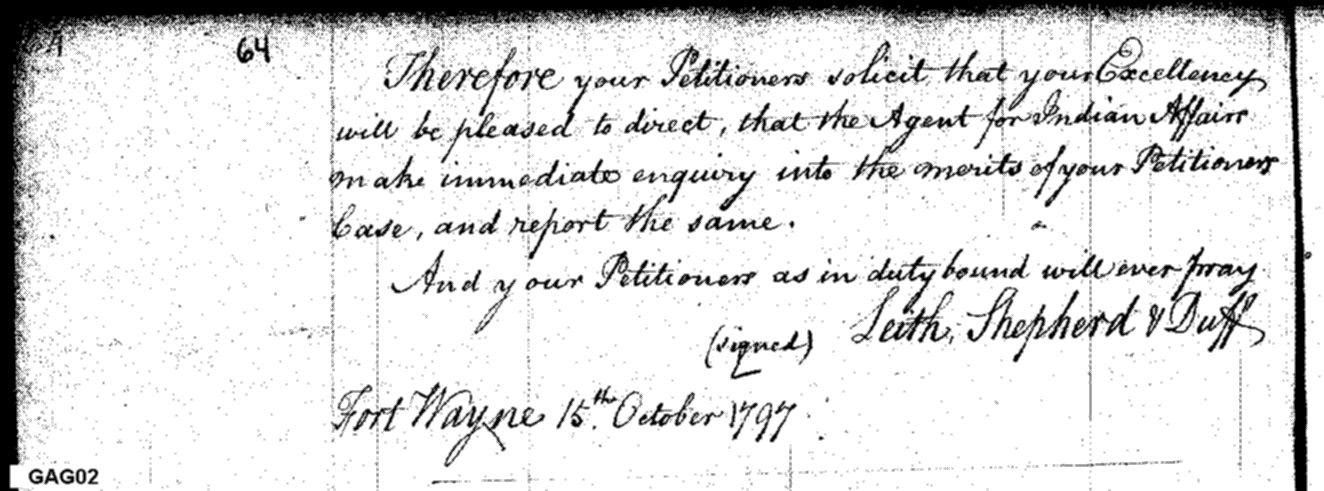 64
Therefore your Petitioners solicit that your Excellency
will be pleased to direct, that the Agent for Indian Affairs
make immediate enquiry into the merits of your Petitioners
Case, and report the same.
And your Petitioners as in duty bound will ever pray
(signed) Leith, Shepherd & Duff
Fort Wayne 15th. October 1797
GAG02